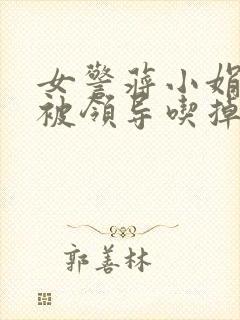 女警蒋小娟
被领导喫掉
郭善林